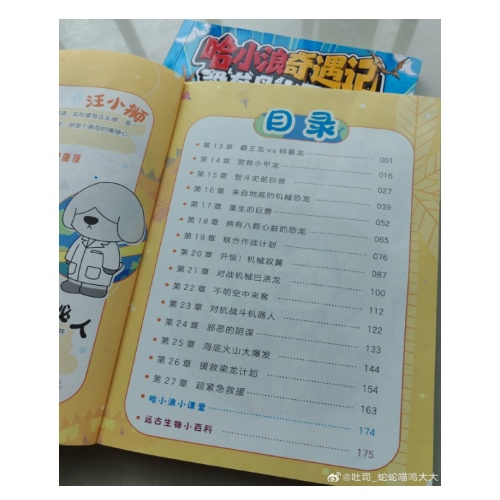 哈小浪奇遇记
汪小狮
目录
第13章 霸王龙vs特暴龙 001
第14章 营救小甲龙 016
第15章 智斗史前巨兽 027
第16章 来自地底的机械恐龙 039
第17章 重生的巨兽 052
第18章 拥有八颗心脏的恐龙 065
第19章 联合作战计划 076
第20章 升级！机械双翼 087
第21章 对战机械巴洛龙 100
第22章 不明空中来客 112
第23章 对抗战斗机器人 122
第24章 邪恶的阴谋 133
第25章 海底火山大爆发 144
第26章 援救梁龙计划 154
第27章 超紧急救援 163
哈小浪小课堂 174
远古生物小百科 175
@吐司_蛇蛇喵呜大大